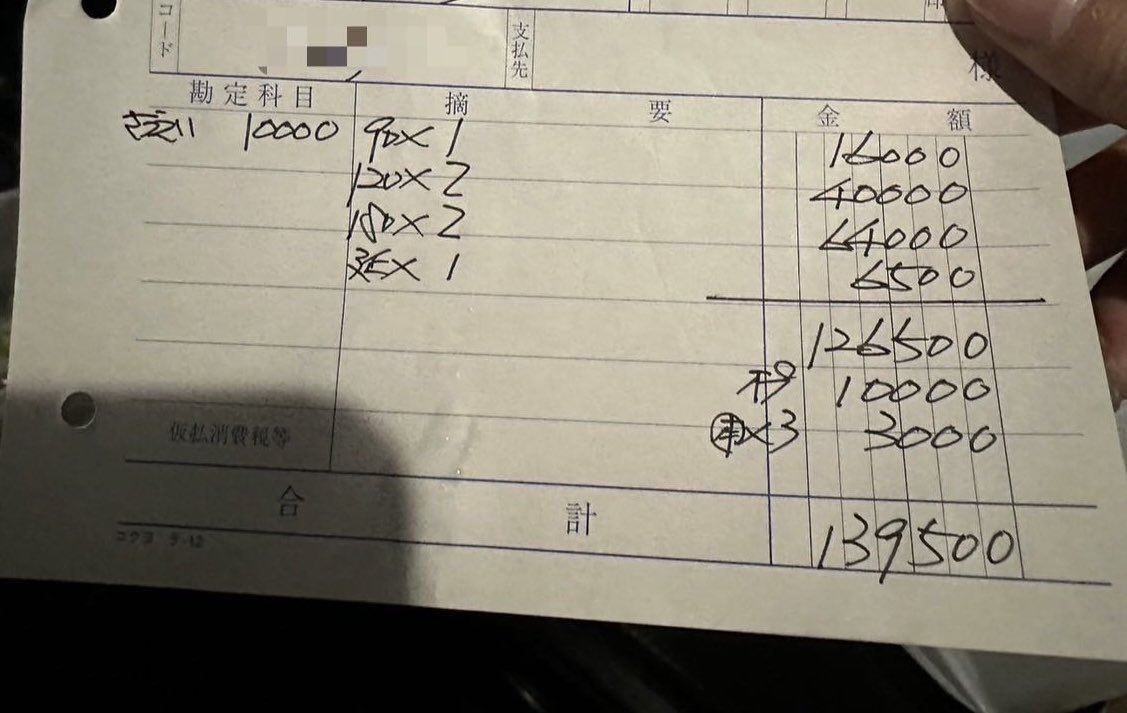 コード
支払先
様
勘定科目 摘要 金額
10000 90×1 16000
120×2 40000
180×2 64000
延×1 6500
126500
10000
×3 3000
仮払消費税等
合計 139500
コクヨ テ-12